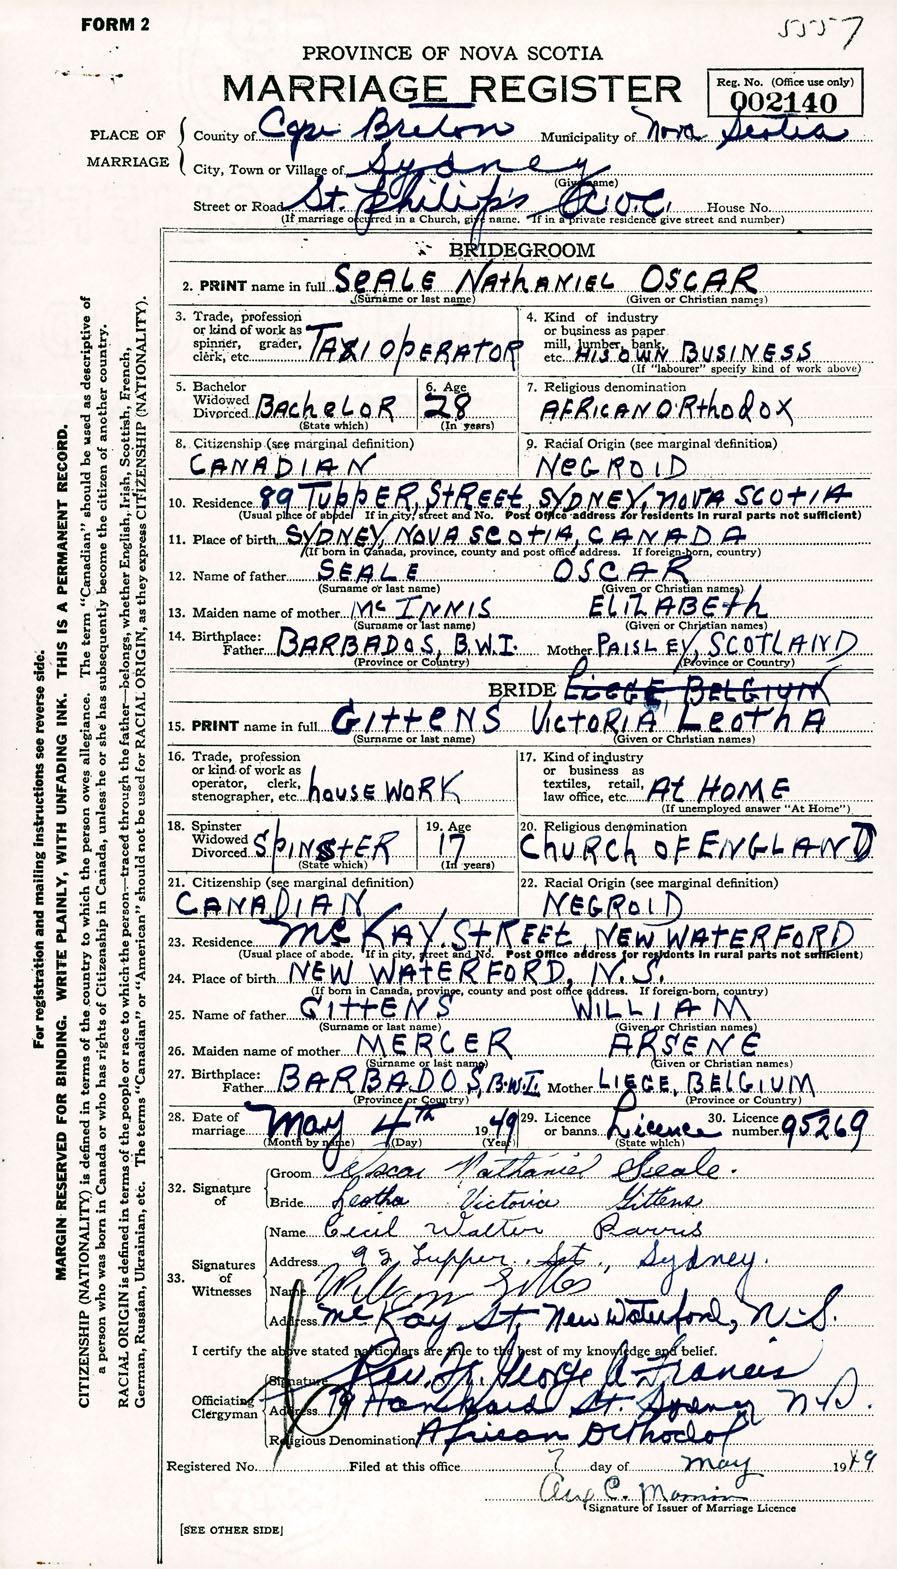 FORM 2
5557
PROVINCE OF NOVA SCOTIA
MARRIAGE REGISTER
Reg. No. (Office use only)
002140
PLACE OF MARRIAGE
County of Cape Breton Municipality of Nova Scotia
City, Town or Village of Sydney
(Give name)
Street or Road St. Philip's A.O.C. House No.
(If marriage occurred in a Church, give name. If in a private residence give street and number)
BRIDEGROOM
2. PRINT name in full SEALE NATHANIEL OSCAR
(Surname or last name) (Given or Christian names)
3. Trade, profession or kind of work as spinner, grader, clerk, etc. TAXI OPERATOR
4. Kind of industry or business as paper mill, lumber, bank, etc. HIS OWN BUSINESS
(If "labourer" specify kind of work above)
5. Bachelor Widowed Divorced BACHELOR
(State which)
6. Age 28
(In years)
7. Religious denomination
AFRICAN ORTHODOX
8. Citizenship (see marginal definition)
CANADIAN
9. Racial Origin (see marginal definition)
NEGROID
10. Residence 89 TUPPER, STREET, SYDNEY, NOVA SCOTIA
(Usual place of abode. If in city, street and No. Post Office address for residents in rural parts not sufficient)
11. Place of birth SYDNEY, NOVA SCOTIA, CANADA
(If born in Canada, province, county and post office address. If foreign-born, country)
12. Name of father SEALE OSCAR
(Surname or last name) (Given or Christian names)
13. Maiden name of mother Mc INNIS ELIZABETH
(Surname or last name) (Given or Christian names)
14. Birthplace: Father BARBADOS, B.W.I. Mother PAISLEY, SCOTLAND
(Province or Country) (Province or Country)
BRIDE LIEGE, BELGIUM
15. PRINT name in full GITTENS VICTORIA LEOTHA
(Surname or last name) (Given or Christian names)
16. Trade, profession or kind of work as operator, clerk, stenographer, etc. HOUSE WORK
17. Kind of industry or business as textiles, retail, law office, etc. AT HOME
(If unemployed answer "At Home")
18. Spinster Widowed Divorced SPINSTER
(State which)
19. Age 17
(In years)
20. Religious denomination
CHURCH OF ENGLAND
21. Citizenship (see marginal definition)
CANADIAN
22. Racial Origin (see marginal definition)
NEGROID
23. Residence McKAY. STREET, NEW WATERFORD
(Usual place of abode. If in city, street and No. Post Office address for residents in rural parts not sufficient)
24. Place of birth NEW WATERFORD, N.S.
(If born in Canada, province, county and post office address. If foreign-born, country)
25. Name of father GITTENS WILLIAM
(Surname or last name) (Given or Christian names)
26. Maiden name of mother MERCER ARSENE
(Surname or last name) (Given or Christian names)
27. Birthplace: Father BARBADOS, B.W.I. Mother LIEGE, BELGIUM
(Province or Country) (Province or Country)
28. Date of marriage May 4th 1949
(Month by name) (Day) (Year)
29. Licence or banns. Licence
(State which)
30. Licence number 95269
32. Signature of
Groom Oscar Nathaniel Seale.
Bride Leotha Victoria Gittens
33. Signatures of Witnesses
Name Cecil Walter Parris
Address 92 Tupper St., Sydney.
Name William
Address McKay St, New Waterford, N.S.
I certify the above stated particulars are true to the best of my knowledge and belief.
Officiating Clergyman
Signature Rev. Fr. George A Francis
Address 19 St. Sydney N.S.
Religious Denomination African Orthodox
Registered No. Filed at this office 7 day of May 1949
Signature of Issuer of Marriage Licence
[SEE OTHER SIDE]
For registration and mailing instructions see reverse side.
MARGIN RESERVED FOR BINDING. WRITE PLAINLY, WITH UNFADING INK. THIS IS A PERMANENT RECORD.
CITIZENSHIP (NATIONALITY) is defined in terms of the country to which the person owes allegiance. The term "Canadian" should be used as descriptive of
a person who was born in Canada or who has rights of Citizenship in Canada, unless he or she has subsequently become the citizen of another country.
RACIAL ORIGIN is defined in terms of the people or race to which the person—traced through the father—belongs, whether English, Irish, Scottish, French,
German, Russian, Ukrainian, etc. The terms "Canadian" or "American" should not be used for RACIAL ORIGIN, as they express CITIZENSHIP (NATIONALITY).